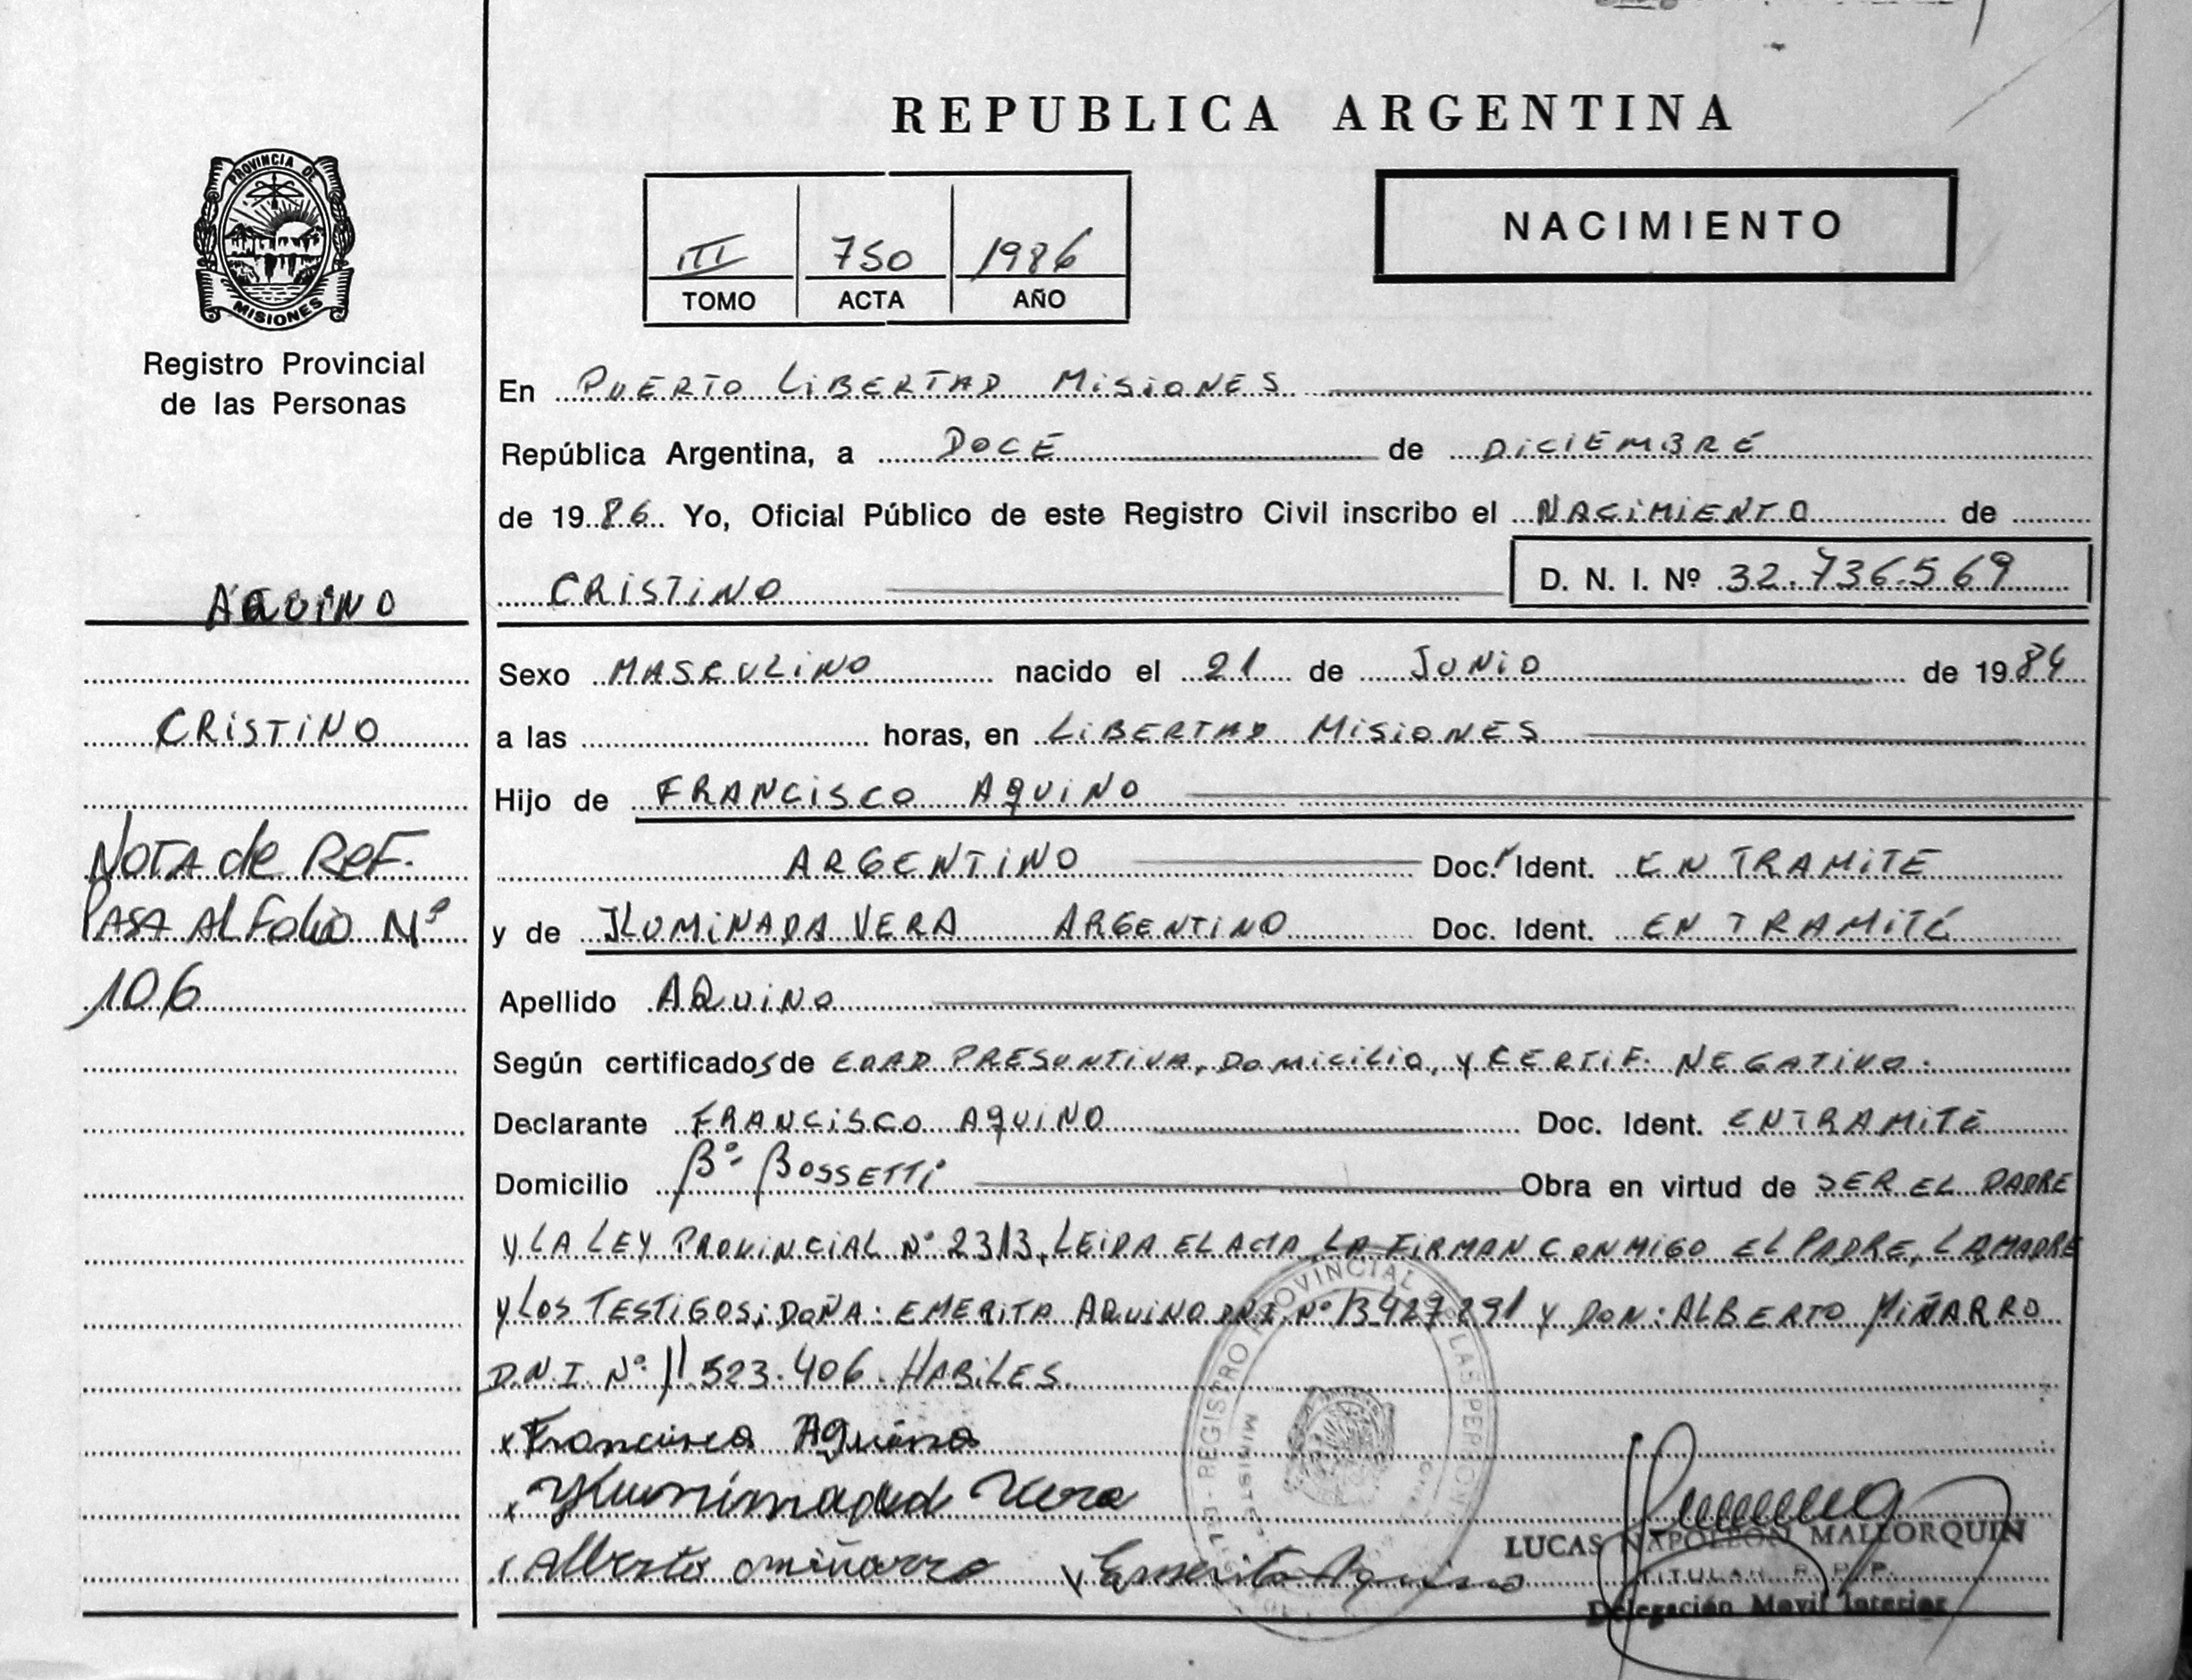 REPUBLICA ARGENTINA
PROVINCIA DE
MISIONES
Registro Provincial
de las Personas
III 750 1986
TOMO ACTA AÑO
NACIMIENTO
En PUERTO LIBERTAD MISIONES
República Argentina, a DOCE de DICIEMBRE
de 1986 Yo, Oficial Público de este Registro Civil inscribo el NACIMIENTO de
CRISTINO D. N. I. Nº 32.736.569
AQUINO
Sexo MASCULINO nacido el 21 de JUNIO de 1984
CRISTINO
a las horas, en LIBERTAD MISIONES
Hijo de FRANCISCO AQUINO
NOTA de REF.
ARGENTINO Doc. Ident. EN TRAMITE
PASA AL Folio Nº
y de ILUMINADA VERA ARGENTINO Doc. Ident. EN TRAMITE
106
Apellido AQUINO
Según certificados de EDAD PRESUNTIVA, DOMICILIO, y CERTIF. NEGATIVO.
Declarante FRANCISCO AQUINO Doc. Ident. EN TRAMITE
Domicilio Bº BOSSETTI Obra en virtud de SER EL PADRE
y LA LEY PROVINCIAL Nº 2313, LEIDA EL ACTA, LA FIRMAN CONMIGO EL PADRE, LA MADRE
y LOS TESTIGOS; DOÑA: EMERITA AQUINO DNI. Nº 13427291 Y DON: ALBERTO MIÑARRO
D.N.I. Nº 11.523.406. HABILES.
x Francisco Aquino
x Vera
x Alberto miñarro x Emerita Aquino
REGISTRO PROVINCIAL DE LAS PERSONAS
LUCAS NAPOLEON MALLORQUIN
TITULAR R.P.P.
Delegación Movil Interior